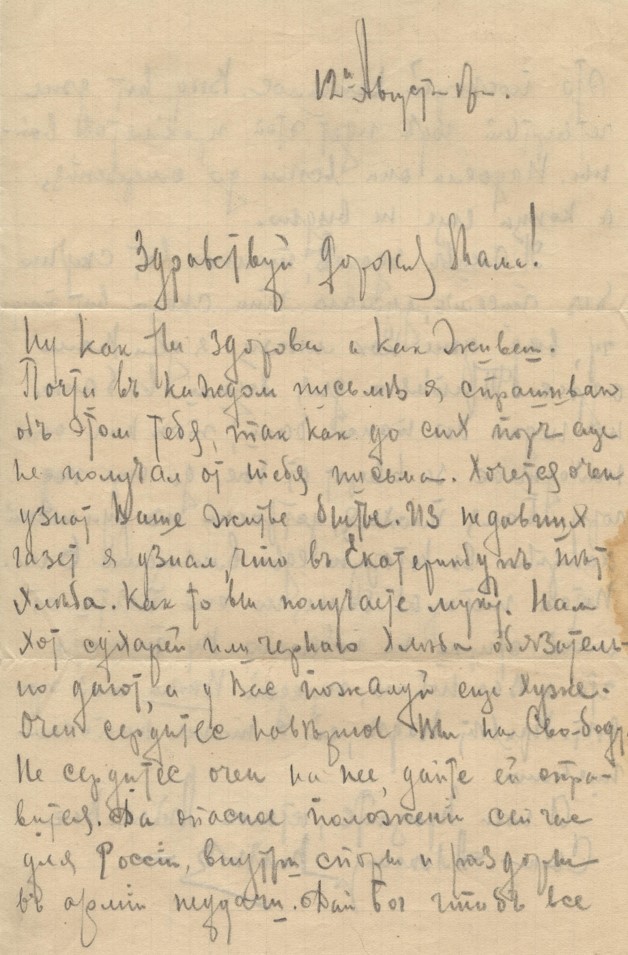 12го Августа
Здравствуй дорогая Мама!
Ну как Ты здорова и как живеш.
Почти въ каждом письмѣ я спрашиваю
объ этом тебя, так как до сих поръ еще
не получал от тебя письма. Хочется очен
узнат Ваше житье бытье. Из недавних
газет я узнал, что въ Екатеринбургѣ нѣт
хлѣба. Как то вы получаете муку. Нам
хот сухарей или чернаго хлѣба обязатель-
но дают, а у Вас пожалуй еще хуже.
Очен сердитес навѣрное Вы на Свободу.
Не сердитес очен на нее, дайте ей опра-
вится. Да опасное положение сейчас
для России, внутри споры и раздоры
въ армии неудачи. Дай Бог чтобъ все